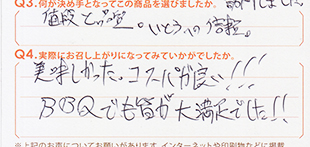 Q3.何が決め手となってこの商品を選びましたか。
値段と
。いとうへの信頼。
Q4.実際にお召し上がりになってみていかがでしたか。
美味しかった。コスパが良い!!!
BBQでも皆が大満足でした!!
※上記のお声についてお願いがあります。インターネットや印刷物などに掲載